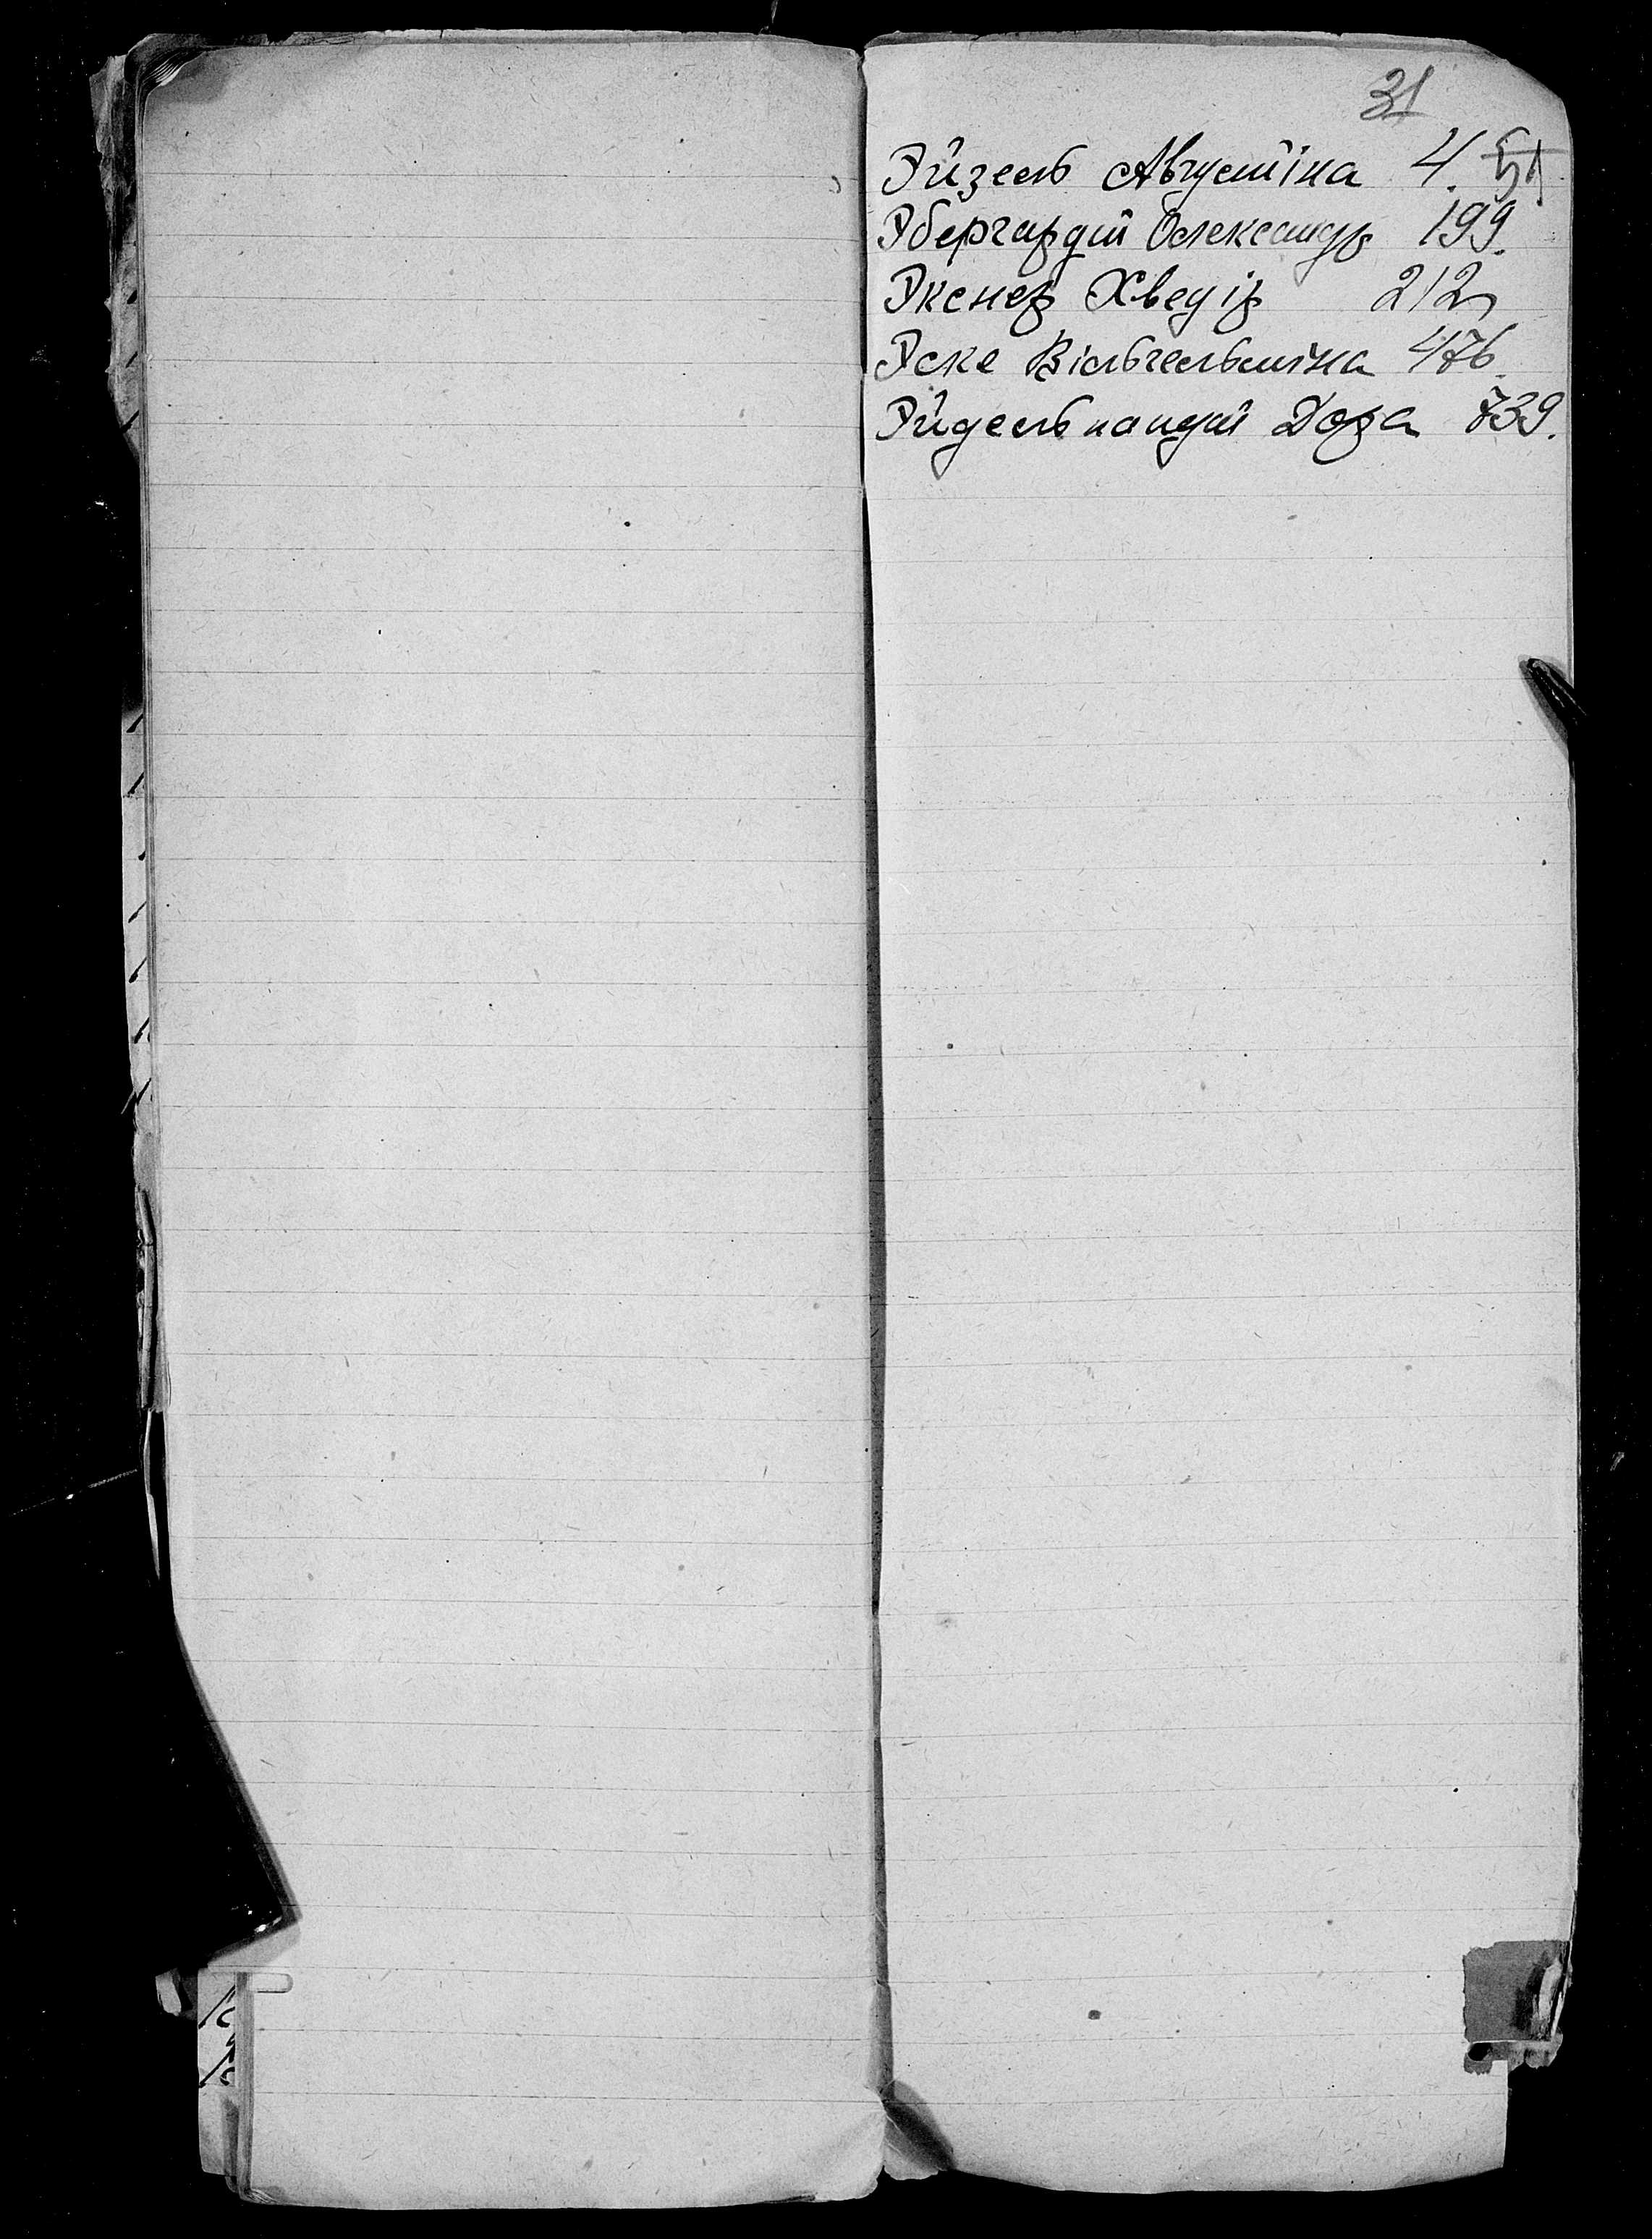 31
Эйзель Августіна 4. 51
Эбергардт Олександр 199.
Экснер Хведір 212
Эске Вільгельміна 476.
Эйдельнандт Дора 739.